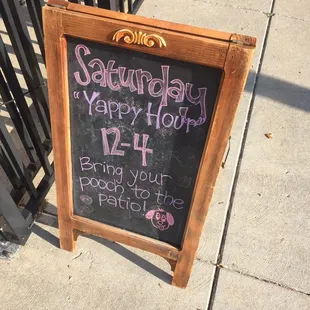 Saturday
"Yappy Hour"
12-4
Bring your
pooch to the
patio!